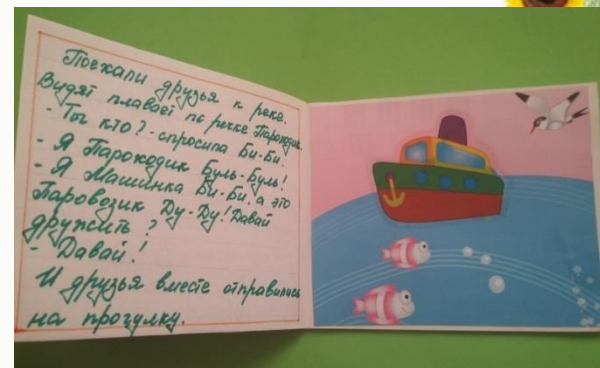 Поехали друзья к реке.
Видят плавает по речке Пароходик.
- Ты кто? - спросила Би-Би.
- Я Пароходик Буль-Буль!
- Я Машинка Би-Би, а это
Паровозик Ду-Ду! Давай
дружить?
- Давай!
И друзья вместе отправились
на прогулку.